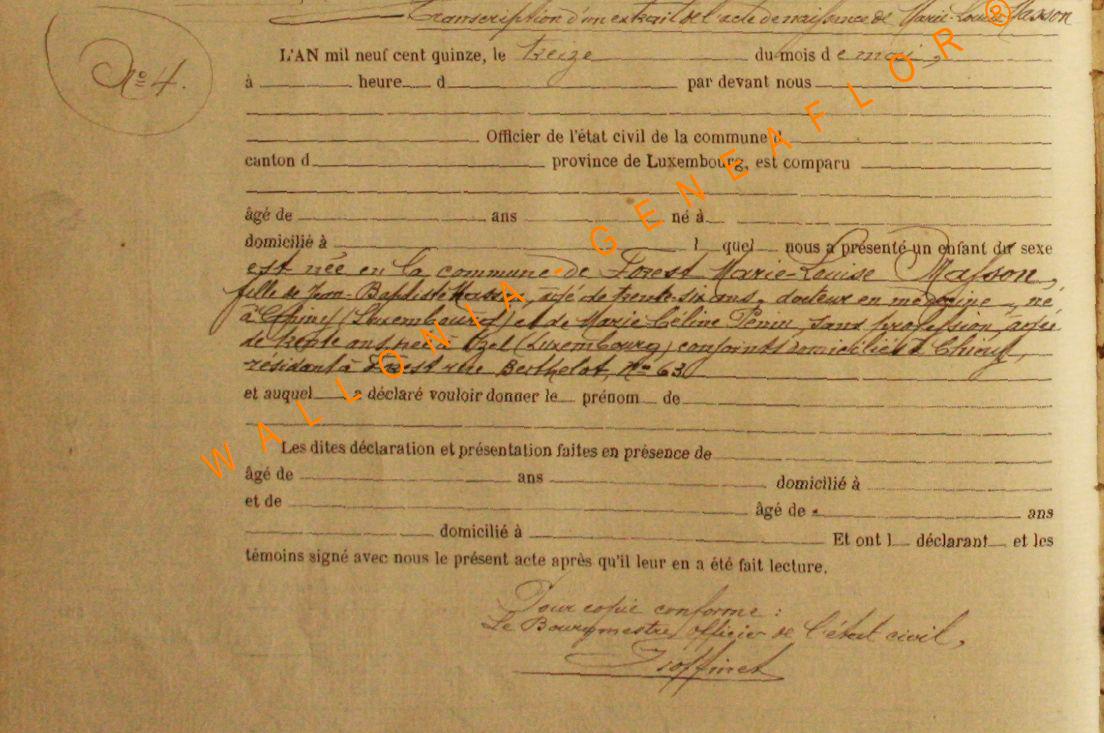 Transcription d'un extrait de l'acte de naissance de Marie-Louise Masson
N° 4.
L'AN mil neuf cent quinze, le treize du mois de mai,
à heure d par devant nous
Officier de l'état civil de la commune d
canton d province de Luxembourg, est comparu
âgé de ans né à
domicilié à l quel nous a présenté un enfant du sexe
est née en la commune de Forest Marie-Louise Masson,
fille de Jean-Baptiste Masson, âgé de trente-six ans, docteur en médecine, né
à (Luxembourg) et de Marie Céline Penin, sans profession, âgée
de trente ans, née à Izel (Luxembourg) conjoints domiciliés à Chiny,
résidant à Forest rue Berthelot, n° 63
et auquel a déclaré vouloir donner le prénom de
Les dites déclaration et présentation faites en présence de
âgé de ans domicilié à
et de âgé de ans
domicilié à Et ont l déclarant et les
témoins signé avec nous le présent acte après qu'il leur en a été fait lecture.
Pour copie conforme :
Le Bourgmestre, officier de l'état civil,
WALLONIA GENEAFLOR ®